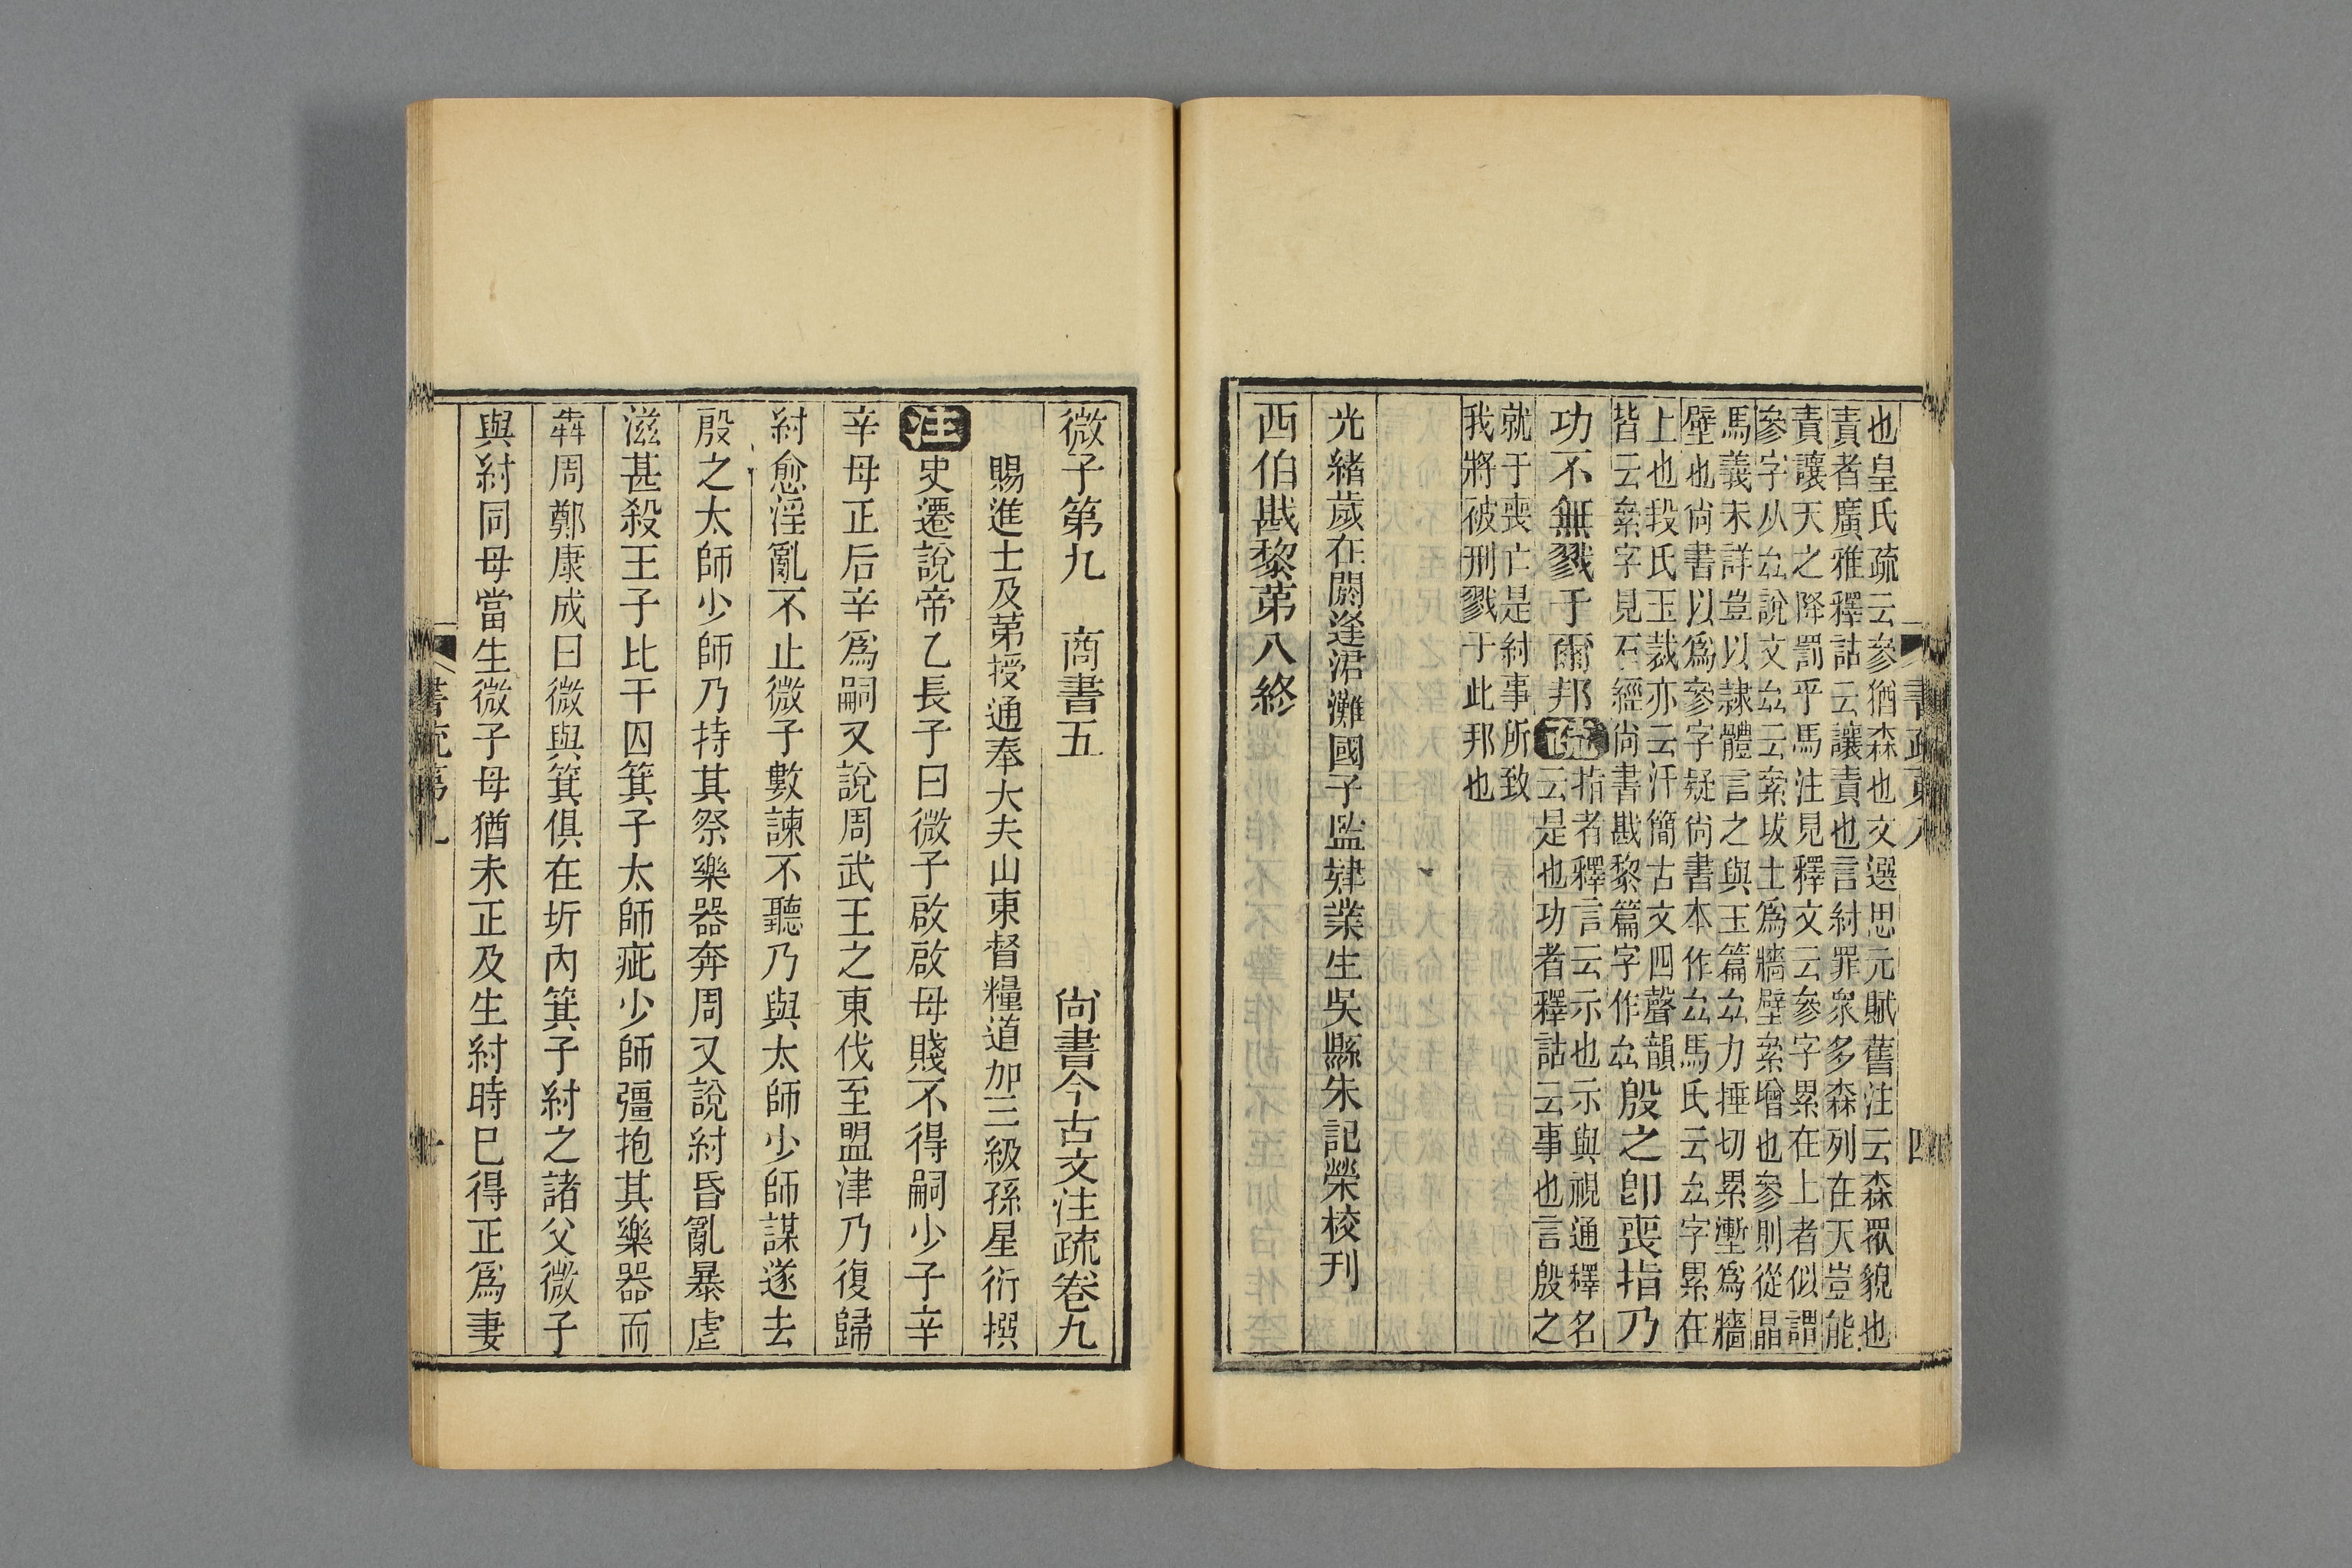 也皇氏疏云參猶森也文選思元賦舊注云森眾貌也
責者廣雅釋詁云讓責也言紂罪衆多森列在天豈能
責讓天之降罰乎馬注見釋文云參字累在上者似謂
參字从厽說文厽云絫坺土爲牆壁絫增也參則從晶
馬義未詳豈以隸體言之與玉篇厽力捶切累壍爲牆
壁也尙書以爲參字疑尙書本作厽馬氏云厽字累在
上也段氏玉裁亦云汗簡古文四聲韻
皆云絫字見石經尙書戡黎篇字作厽
殷之卽喪指乃
功不無戮于爾邦
疏
指者釋言云示也示與視通釋名
云是也功者釋詁云事也言殷之
就于喪亡是紂事所致
我將彼刑戮于此邦也
光緒歲在閼逢涒灘國子監肄業生吳縣朱記榮校刊
西伯戡黎第八終
書疏第八
四
微子第九 商書五 尙書今古文注疏卷九
賜進士及第授通奉大夫山東督糧道加三級孫星衍撰
注史遷說帝乙長子曰微子啟啟母賤不得嗣少子辛
辛母正后辛爲嗣又說周武王之東伐至盟津乃復歸
紂愈淫亂不止微子數諫不聽乃與太師少師謀遂去
殷之太師少師乃持其祭樂器奔周又說紂昏亂暴虐
滋甚殺王子比干囚箕子太師疵少師彊抱其樂器而
犇周鄭康成曰微與箕俱在圻內箕子紂之諸父微子
與紂同母當生微子母猶未正及生紂時巳得正爲妻
書疏第九
一